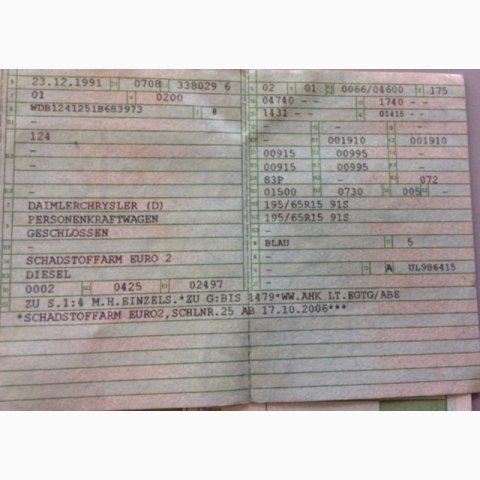 23.12.1991 0708 338029 6
01 0200
WDB1241251B683973 8
-
124
-
-
-
DAIMLERCHRYSLER (D)
PERSONENKRAFTWAGEN
GESCHLOSSEN
-
SCHADSTOFFARM EURO 2
DIESEL
0002 0425 02497
02 01 0066/04600 175
04740 - - 1740 - -
1431 - - 01415 - -
- - -
- 001910 001910
- - -
00915 00995 -
00915 00995 -
83P - 072
01500 0730 005 -
195/65R15 91S
195/65R15 91S
-
BLAU 5
-
- A UL986415
-
ZU S.1:4 M.H.EINZELS.*ZU G:BIS 1479*WW.AHK LT.EGTG/ABE
*SCHADSTOFFARM EURO2,SCHLNR.25 AB 17.10.2006***